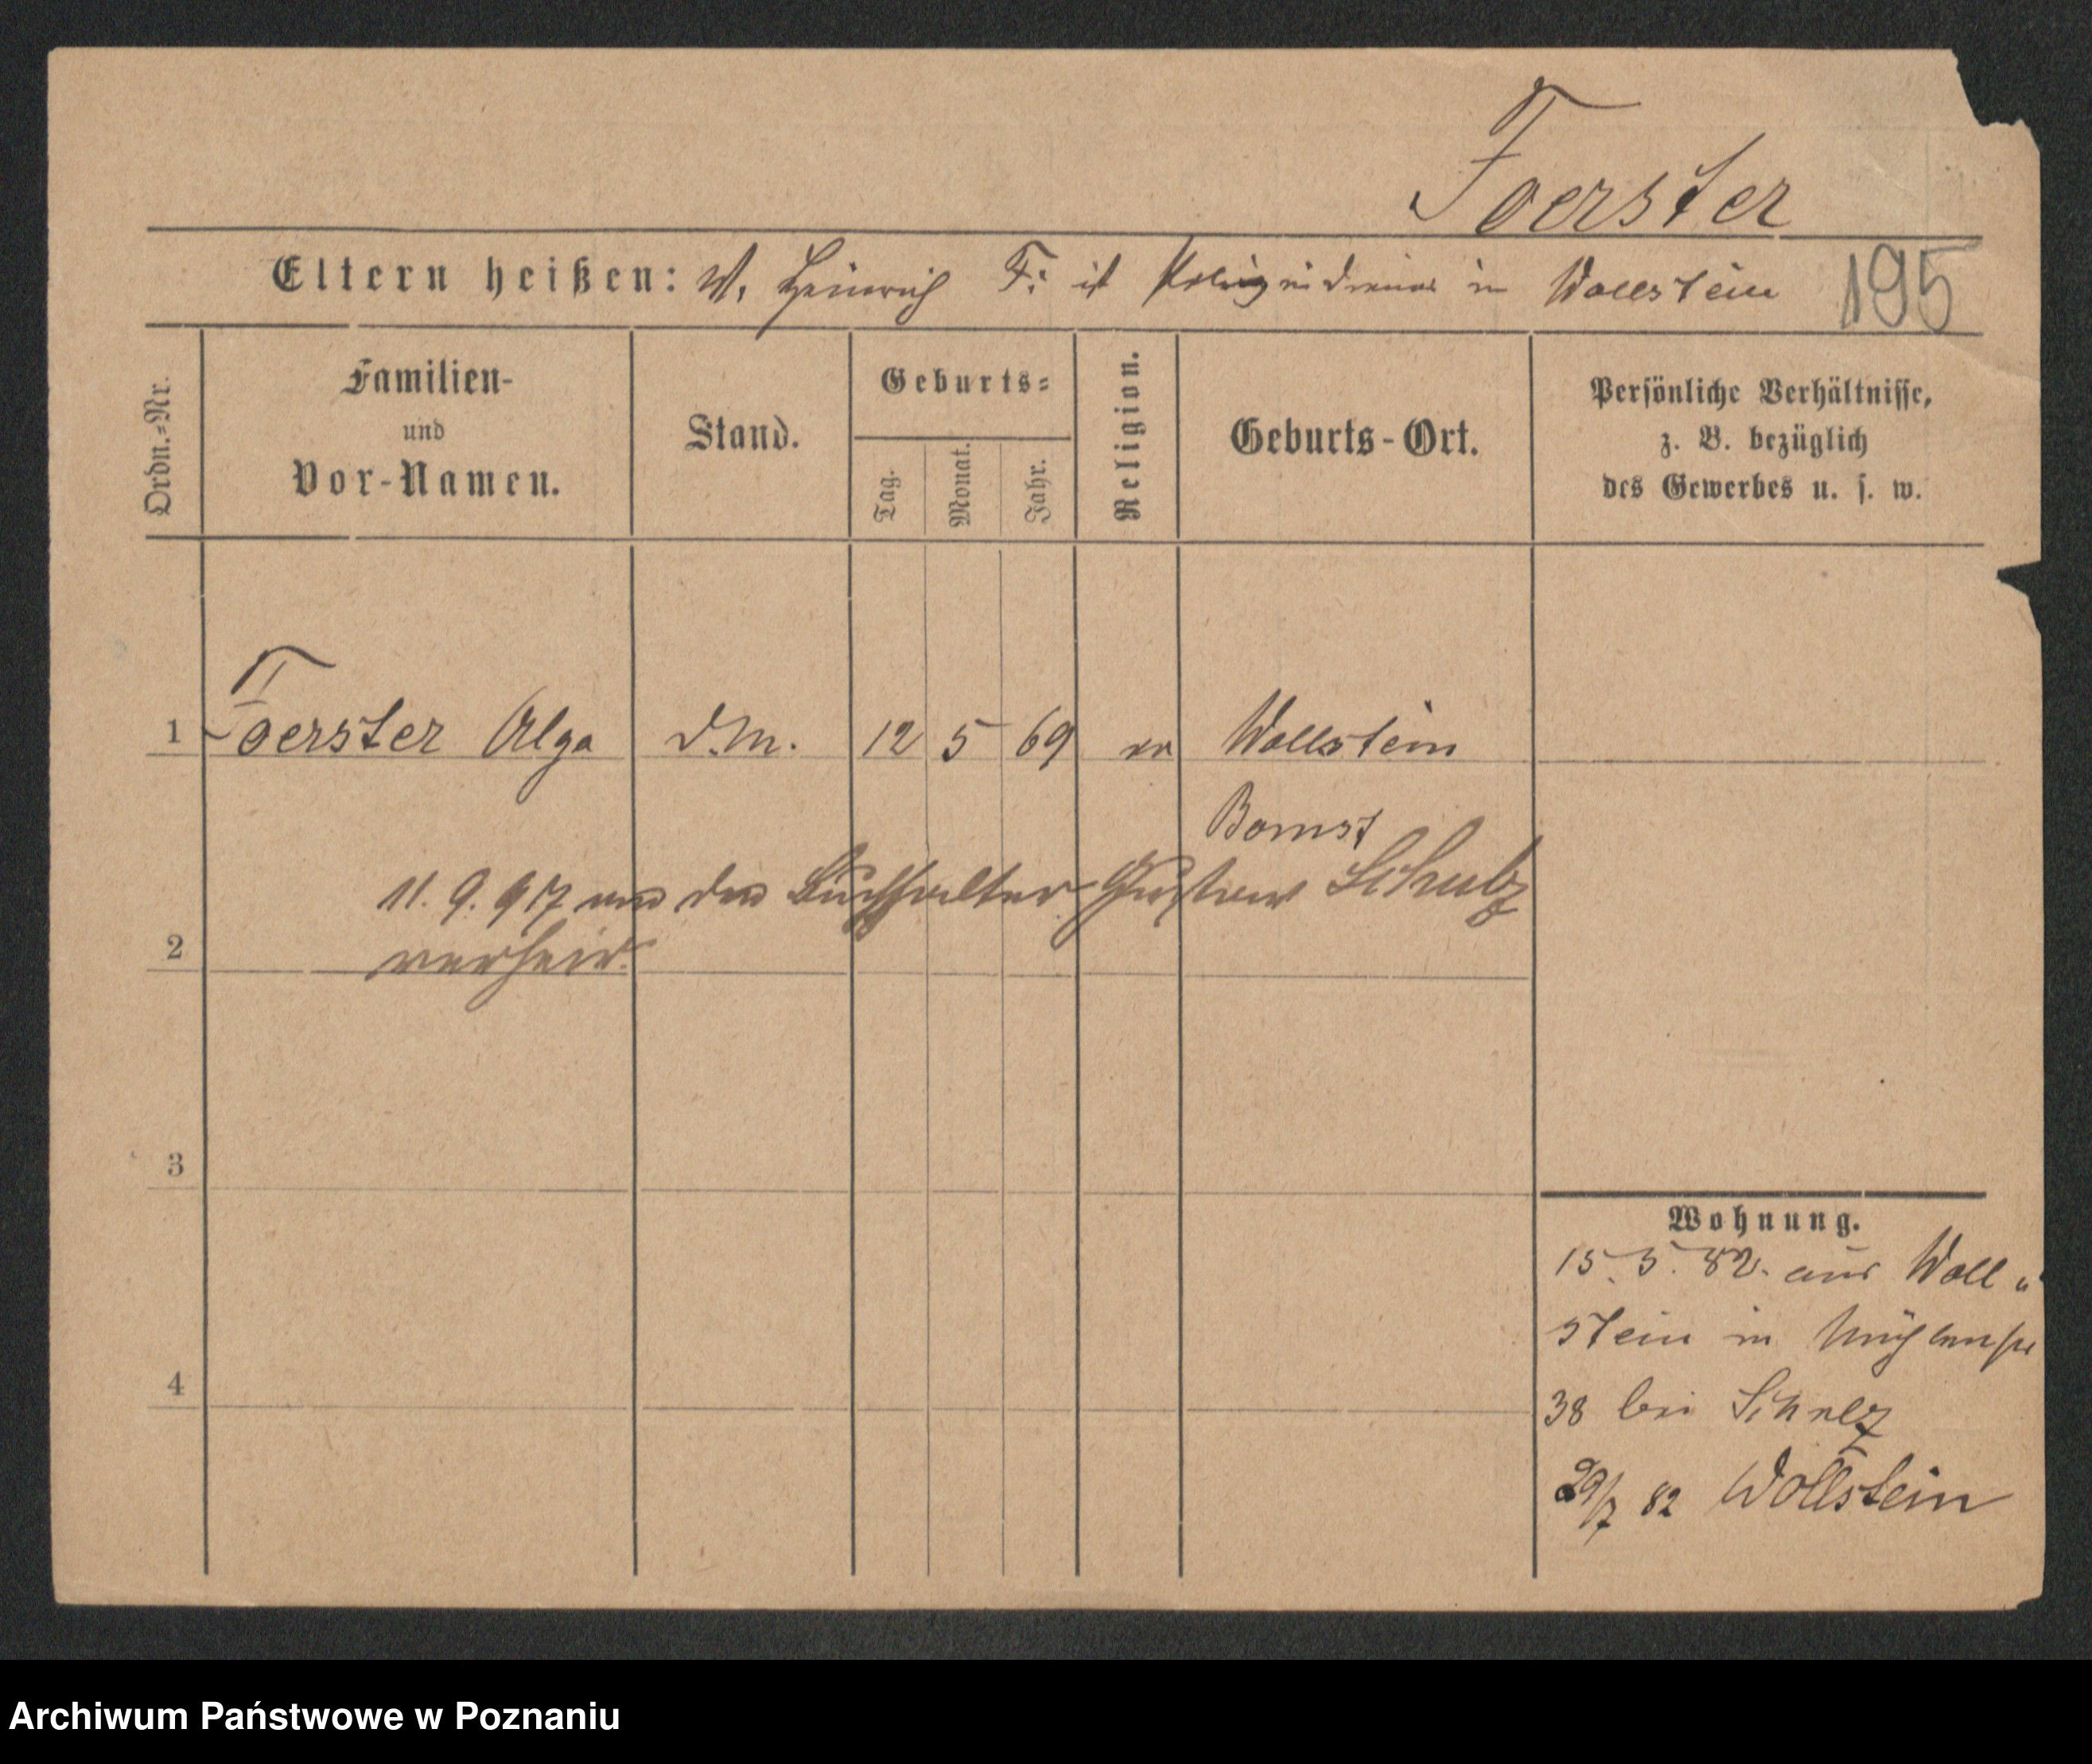 Foerster
Eltern heißen: V. Heinrich F. ist Polizeidiener in Wollstein 195
Ordn.=Nr.
Familien-
und
Vor-Namen.
Stand.
Geburts=
Tag.
Monat.
Jahr.
Religion.
Geburts-Ort.
Persönliche Verhältnisse,
z. B. bezüglich
des Gewerbes u. s. w.
1 Foerster Olga D.M. 12 5 69 ev Wollstein
Bomst
11. 9. 97 den Buchhalter Gustav Schulz
2 verheir.
3
4
Wohnung.
15. 5. 82. aus Woll"
stein in Mühlenstr
38 bei Schulz
29/7 82 Wollstein
Archiwum Państwowe w Poznaniu